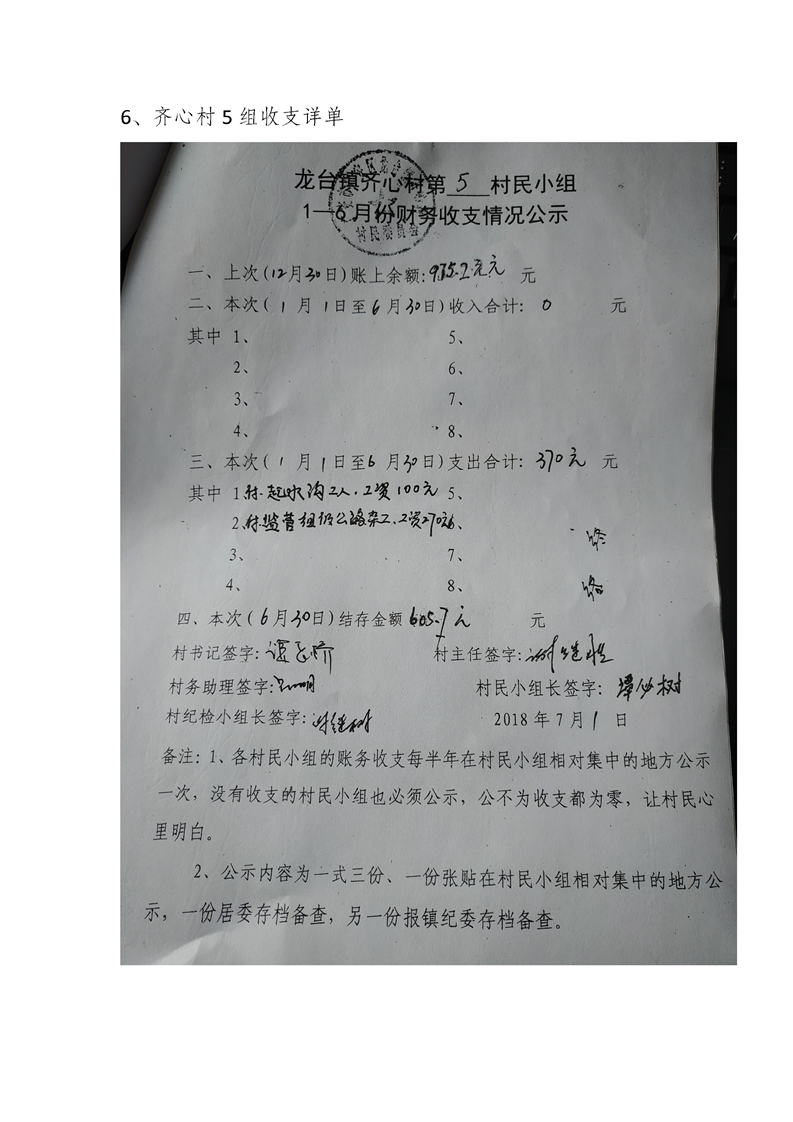 6、齐心村 5 组收支详单
龙台镇齐心村第 5 村民小组
1—6月份财务收支情况公示
村民委员会
一、上次(12月30日)账上余额:975.7元元 元
二、本次( 1 月 1日至 6 月30日)收入合计: 0 元
其中 1、 5、
2、 6、
3、 7、
4、 8、
三、本次( 1 月 1日至6 月30日)支出合计: 370元 元
其中 1、工人.工资100元 5、
2、公路杂工.工资270元6、
3、 7、
4、 8、
四、本次(6月30日)结存金额 605.7元 元
村书记签字: 村主任签字:
村务助理签字: 村民小组长签字:
村纪检小组长签字: 2018 年 7 月 1 日
备注:1、各村民小组的账务收支每半年在村民小组相对集中的地方公示
一次，没有收支的村民小组也必须公示，公不为收支都为零，让村民心
里明白。
2、公示内容为一式三份、一份张贴在村民小组相对集中的地方公
示，一份居委存档备查，另一份报镇纪委存档备查。